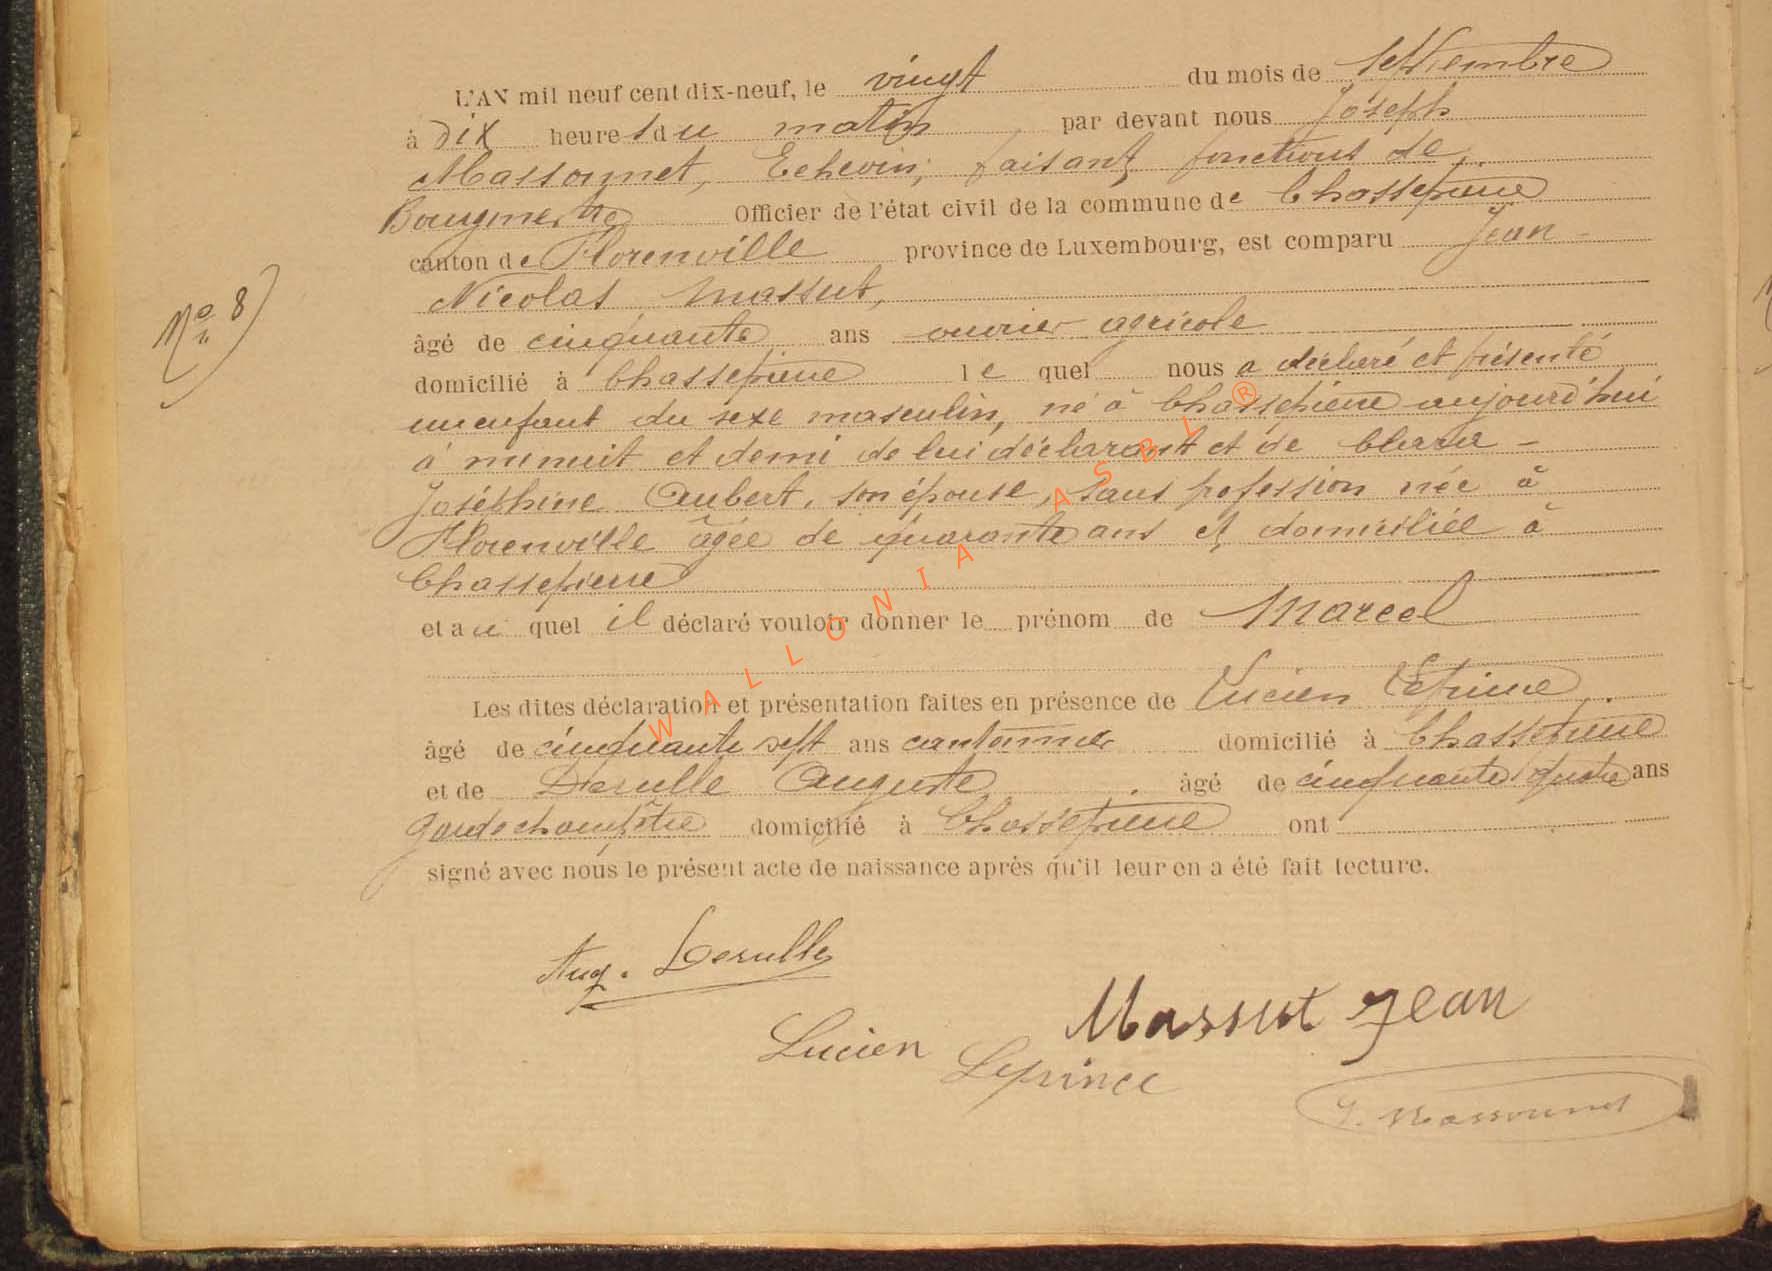 L'AN mil neuf cent dix-neuf, le vingt du mois de septembre
à dix heures du matin par devant nous Joseph
Massonnet, Echevin, faisant fonctions de
Bourgmestre Officier de l'état civil de la commune de Chassepierre
canton de Florenville province de Luxembourg, est comparu Jean-
Nicolas Massut,
Nº 8)
âgé de cinquante ans ouvrier agricole
domicilié à Chassepierre lequel nous a déclaré et présenté
un enfant du sexe masculin, né à Chassepierre aujourd'hui
à minuit et demi de lui déclarant et de Clara -
Joséphine Aubert, son épouse, sans profession née à
Florenville âgée de quarante ans et domiciliée à
Chassepierre
et auquel il déclaré vouloir donner le prénom de Marcel
Les dites déclaration et présentation faites en présence de Lucien Leprince
âgé de cinquante sept ans cantonnier domicilié à Chassepierre
et de Desulle Auguste âgé de cinquante quatre ans
garde champêtre domicilié à Chassepierre ont
signé avec nous le présent acte de naissance après qu'il leur en a été fait lecture.
Aug. Desulle
Massut Jean
Lucien Leprince
J. Massonnet
WALLONIA ASBL ®